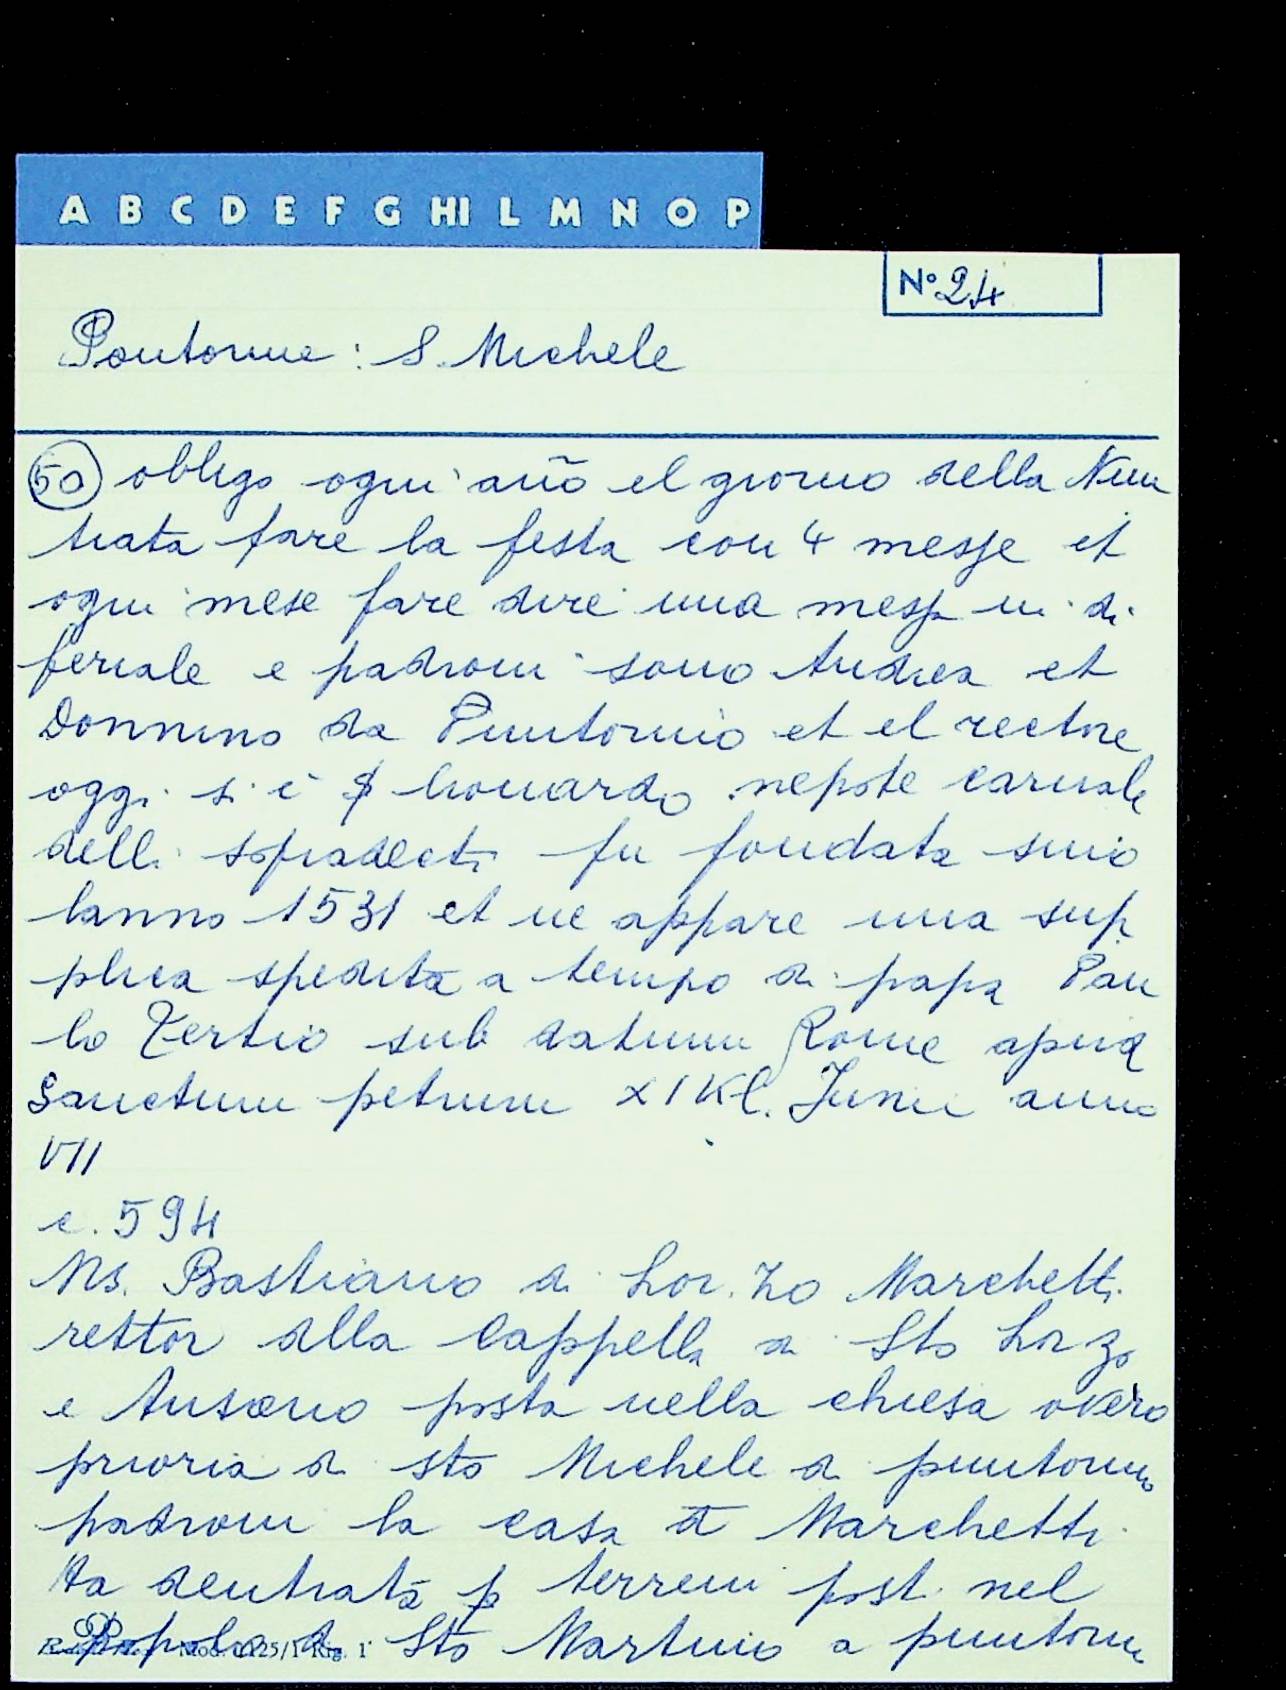 A B C D E F G HI L M N O P
N° 24
Pontorme: S. Michele
50 obligo ogni año el giorno della Nun
tiata fare la festa con 4 messe et
ogni mese fare dire una messa in di
feriale e padroni sono Andrea et
Donnino da Puntormo et el rectore
oggi si è Lionardo nepote carnale
delli sopradecti fu fondata sino
lanno 1531 et ne appare una sup
plica spedita a tempo di papa Pau
lo Tertio sub datum Rome apud
Sanctum petrum XI Kl. Junii anno
VII
c. 594
Ms. Bastiano di Lor.zo Marchetti
rettor della Cappella di Sto Lorzo
e Ansano posta nella chiesa overo
prioria di sto Michele di puntormo
padroni la casa de Marchetti
Ha dentrata p terreni posti nel
Popolo di Sto Martino a puntorm
Mod. 1125/1 Rig. 1